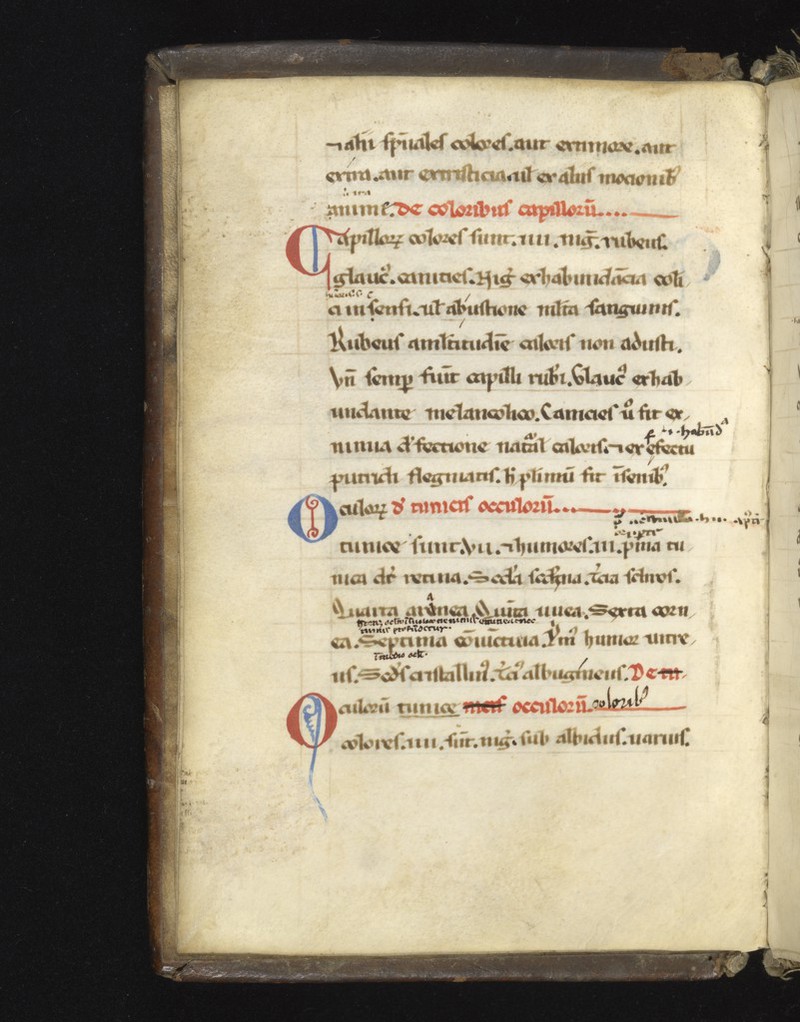 ⁊ alii sp̄uales colores. aut ex timore. aut
ex ira. aut ex tristicia. ul̄ ex aliis mocionib᷒
anime. de coloribus capillorū....
Capilloꝝ colores sunt. iiii. niḡ. rubeus.
glauc᷒. canities. Nig̓ ex habundācia coli
Rubeus a ml̄titudīe caloris non adusti.
Vn̄ semꝑ sunt capilli rub̓i. Glauc᷒ ex hab
undante melancolico. Canicies u̓ fit ex
nimia d̓fectione nat̄al caloris. ⁊ ex efectu
putridi flegmatis. h̓ plīmū fit ī senib᷒.
Oculoꝝ d̓ tunicis occulorū...
tunice sunt. vii. ⁊ humores. iii. p̓ma tu
nica dr̄ retina. Sec̄da sec̄dina. t̄cia scliros.
Quarta aranea. Quīta uuea. Sexta corn
ea. Septima cōiūctiua. P̓m᷒ humor uitre
us. Sec̄ds cristallin᷒. t̄ci᷒ albugineus. De tu
Oculorū tunice occulorū colorib᷒
colores. iiii. sūt. nig̓. sub albidus. uarius.